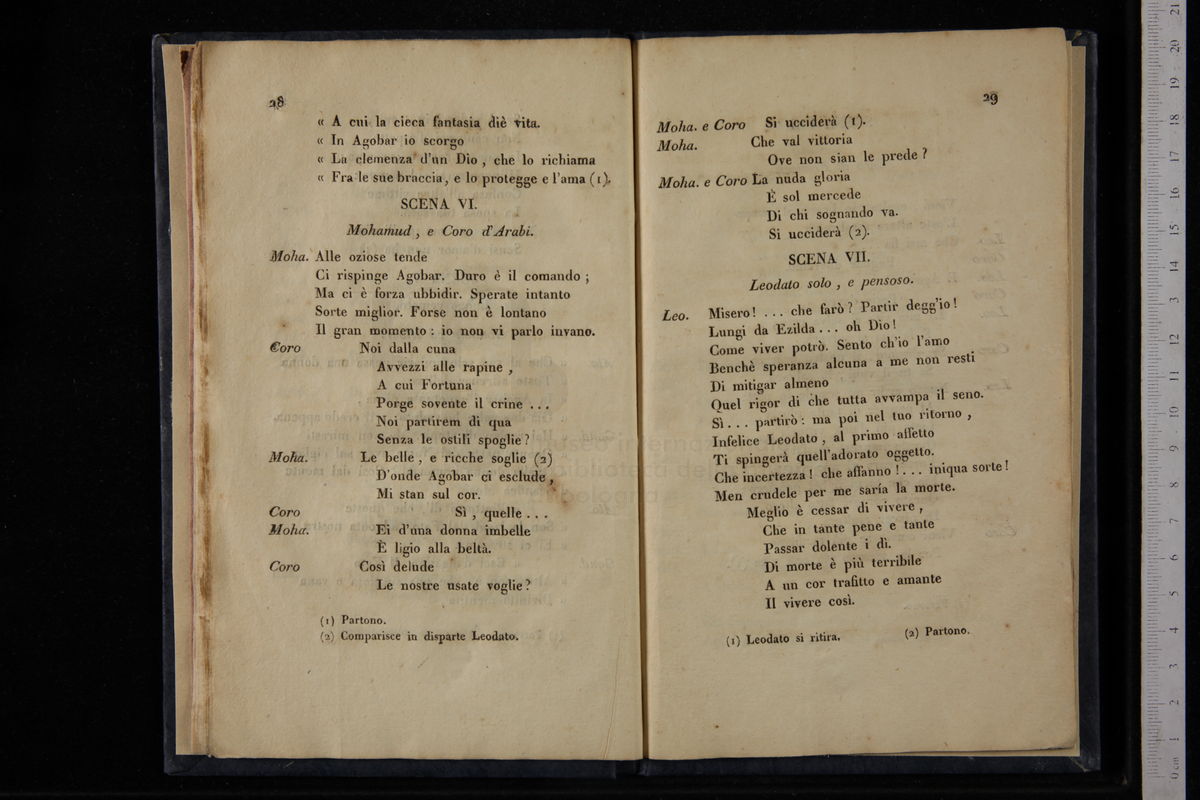 28
« A cui la cieca fantasia diè vita.
« In Agobar io scorgo
« La clemenza d'un Dio , che lo richiama
« Fra le sue braccia, e lo protegge e l'ama (1).
SCENA VI.
Mohamud , e Coro d'Arabi.
Moha. Alle oziose tende
Ci rispinge Agobar. Duro è il comando ;
Ma ci è forza ubbidir. Sperate intanto
Sorte miglior. Forse non è lontano
Il gran momento : io non vi parlo invano.
Coro Noi dalla cuna
Avvezzi alle rapine ,
A cui Fortuna
Porge sovente il crine ...
Noi partirem di qua
Senza le ostili spoglie ?
Moha. Le belle , e ricche soglie (2)
D'onde Agobar ci esclude ,
Mi stan sul cor.
Coro Sì , quelle . . .
Moha. Ei d'una donna imbelle
È ligio alla beltà.
Coro Così delude
Le nostre usate voglie ?
(1) Partono.
(2) Comparisce in disparte Leodato.
29
Moha. e Coro Si ucciderà (1).
Moha. Che val vittoria
Ove non sian le prede ?
Moha. e Coro La nuda gloria
È sol mercede
Di chi sognando va.
Si ucciderà (2).
SCENA VII.
Leodato solo , e pensoso.
Leo. Misero ! . . . che farò ? Partir degg'io !
Lungi da Ezilda . . . oh Dio !
Come viver potrò. Sento ch'io l'amo
Benchè speranza alcuna a me non resti
Di mitigar almeno
Quel rigor di che tutta avvampa il seno.
Sì . . . partirò : ma poi nel tuo ritorno ,
Infelice Leodato , al primo affetto
Ti spingerà quell'adorato oggetto.
Che incertezza ! che affanno ! . . . iniqua sorte !
Men crudele per me saría la morte.
Meglio è cessar di vivere ,
Che in tante pene e tante
Passar dolente i dì.
Di morte è più terribile
A un cor trafitto e amante
Il vivere così.
(1) Leodato si ritira. (2) Partono.